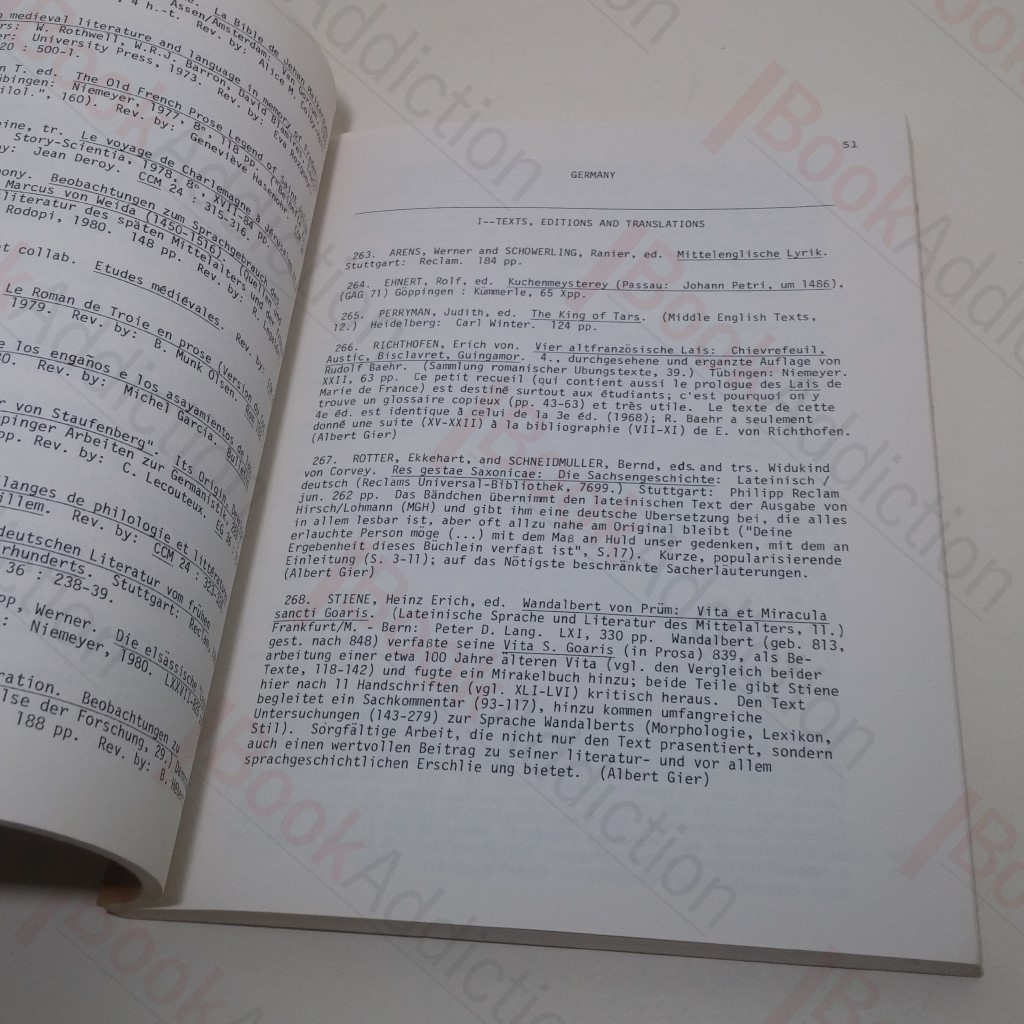 La Bible de
Assen/Amsterdam: Van Gorcum
4 h.-t. Rev. by:
medieval literature and language in memory of
W. Rothwell, W.R.J. Barron, David Blamires
University Press, 1973. Rev. by:
20 : 500-1.
T. ed. The Old French Prose Legend of Saint
Niemeyer, 1977, 8°, 118 pp.
160). Rev. by: Geneviève Hasenohr
eine, tr. Le voyage de Charlemagne à Jérusalem
Story-Scientia, 1978, 8°, XVII-84 pp.
by: Jean Deroy. CCM 24 : 315-316.
Beobachtungen zum Sprachgebrauch des
Marcus von Weida (1450-1516).
literatur des späten Mittelalters und der
Rodopi, 1980. 148 pp. Rev. by: R.
et collab. Etudes médiévales. Rev. by:
Le Roman de Troie en prose (Version du
1979. Rev. by: B. Munk Olsen.
los engaños e los asayamientos de
Rev. by: Michel Garcia.
von Staufenberg". Its Origin,
Göppinger Arbeiten zur Germanistik
pp. Rev. by: C. Lecouteux. EG 36
Mélanges de philologie et littérature
Rev. by: CCM 24 :
deutschen Literatur vom frühen
Stuttgart: Reclam
36 : 238-39.
Werner. Die elsässische
Niemeyer, 1980.
Beobachtungen zu
der Forschung, 29.)
188 pp. Rev. by: B.
51
GERMANY
I--TEXTS, EDITIONS AND TRANSLATIONS
263. ARENS, Werner and SCHOWERLING, Ranier, ed. Mittelenglische Lyrik.
Stuttgart: Reclam. 184 pp.
264. EHNERT, Rolf, ed. Kuchenmeysterey (Passau: Johann Petri, um 1486),
(GAG 71) Göppingen : Kümmerle, 65 Xpp.
265. PERRYMAN, Judith, ed. The King of Tars. (Middle English Texts,
12.) Heidelberg: Carl Winter. 124 pp.
266. RICHTHOFEN, Erich von. Vier altfranzösische Lais: Chievrefeuil,
Austic, Bisclavret, Guingamor. 4., durchgesehene und erganzte Auflage von
Rudolf Baehr. (Sammlung romanischer Ubungstexte, 39.) Tübingen: Niemeyer.
XXII, 63 pp. Ce petit recueil (qui contient aussi le prologue des Lais de
Marie de France) est destiné surtout aux étudiants; c'est pourquoi on y
trouve un glossaire copieux (pp. 43-63) et très utile. Le texte de cette
4e éd. est identique à celui de la 3e éd. (1968); R. Baehr a seulement
donné une suite (XV-XXII) à la bibliographie (VII-XI) de E. von Richthofen.
(Albert Gier)
267. ROTTER, Ekkehart, and SCHNEIDMULLER, Bernd, eds. and trs. Widukind
von Corvey. Res gestae Saxonicae: Die Sachsengeschichte: Lateinisch /
deutsch (Reclams Universal-Bibliothek, 7699.) Stuttgart: Philipp Reclam
jun. 262 pp. Das Bändchen übernimmt den lateinischen Text der Ausgabe von
Hirsch/Lohmann (MGH) und gibt ihm eine deutsche Ubersetzung bei, die alles
in allem lesbar ist, aber oft allzu nahe am Original bleibt ("Deine
erlauchte Person möge (...) mit dem Maß an Huld unser gedenken, mit dem an
Ergebenheit dieses Büchlein verfaßt ist", S.17). Kurze, popularisierende
Einleitung (S. 3-11); auf das Nötigste beschränkte Sacherläuterungen.
(Albert Gier)
268. STIENE, Heinz Erich, ed. Wandalbert von Prüm: Vita et Miracula
sancti Goaris. (Lateinische Sprache und Literatur des Mittelalters, 11.)
Frankfurt/M. - Bern: Peter D. Lang. LXI, 330 pp. Wandalbert (geb. 813,
gest. nach 848) verfaßte seine Vita S. Goaris (in Prosa) 839, als Be-
arbeitung einer etwa 100 Jahre älteren Vita (vgl. den Vergleich beider
Texte, 118-142) und fugte ein Mirakelbuch hinzu; beide Teile gibt Stiene
hier nach 11 Handschriften (vgl. XLI-LVI) kritisch heraus. Den Text
begleitet ein Sachkommentar (93-117), hinzu kommen umfangreiche
Untersuchungen (143-279) zur Sprache Wandalberts (Morphologie, Lexikon,
Stil). Sorgfältige Arbeit, die nicht nur den Text prasentiert, sondern
auch einen wertvollen Beitrag zu seiner literatur- und vor allem
sprachgeschichtlichen Erschlie ung bietet. (Albert Gier)
BookAddiction